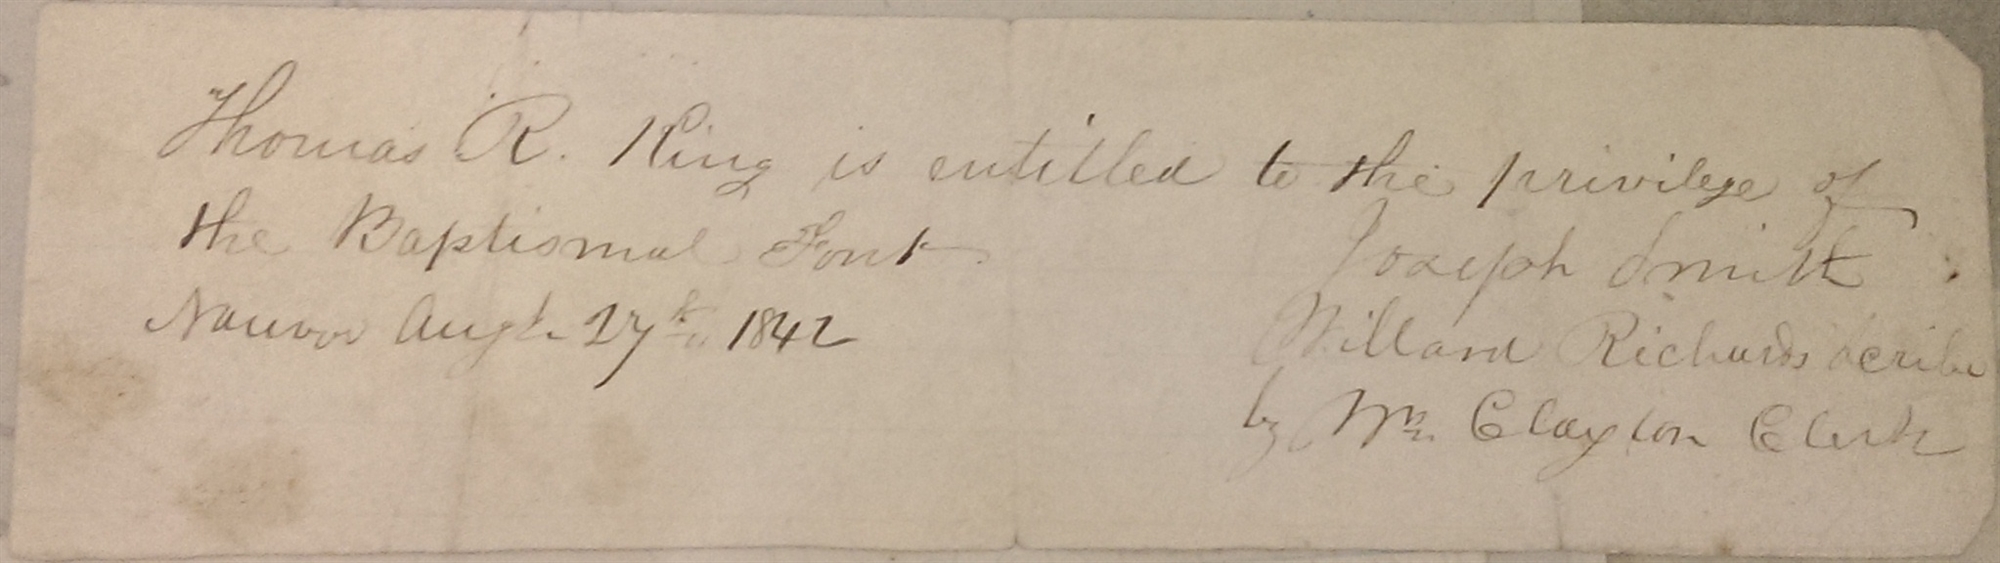 Thomas R. King is entitled to the privilege of
the Baptismal Font
Joseph Smith
Nauvoo Augt. 27th. 1842
Willard Richards Scribe
by Wm. Clayton Clerk